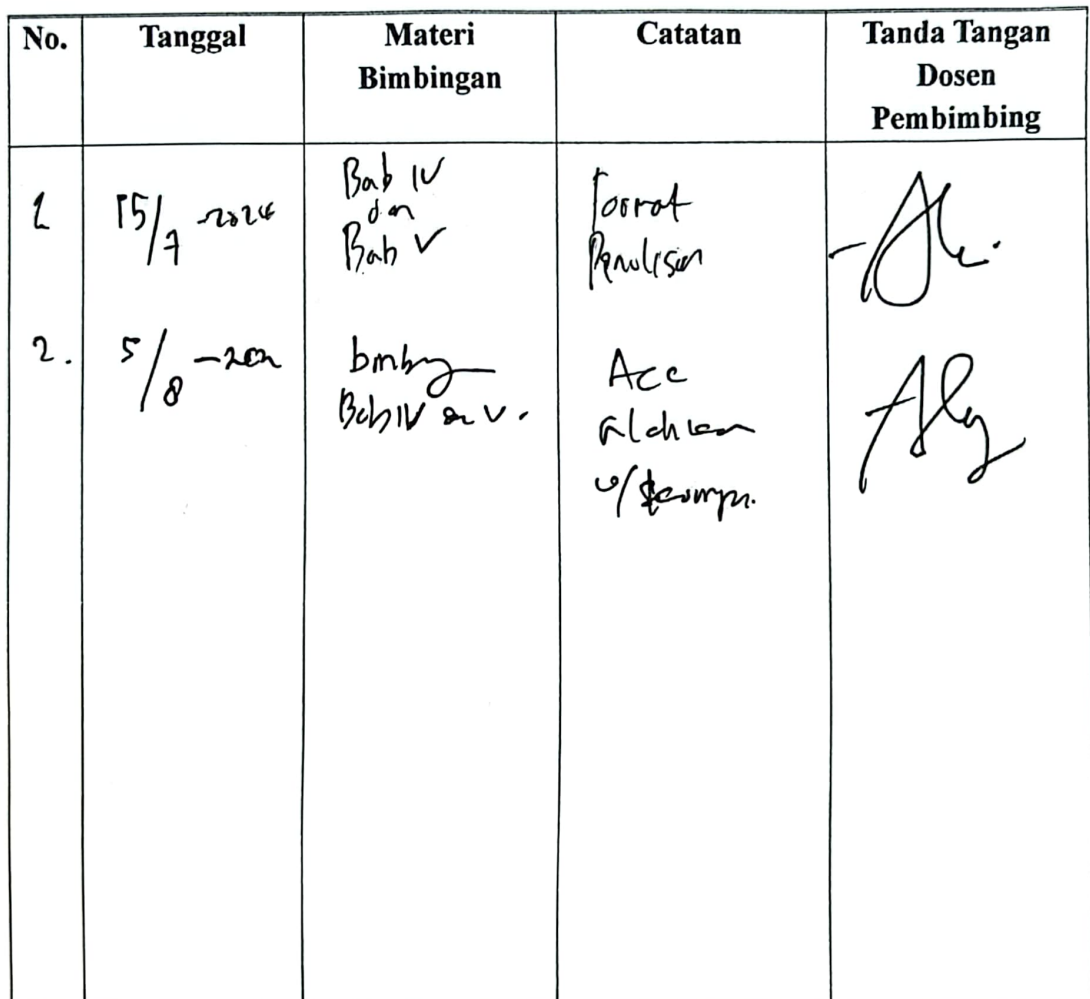 No. Tanggal Materi Bimbingan Catatan Tanda Tangan Dosen Pembimbing
1 15/7 -2024 Bab IV dan Bab V Format Penulisan
2. 5/8 Bab IV V. Acc